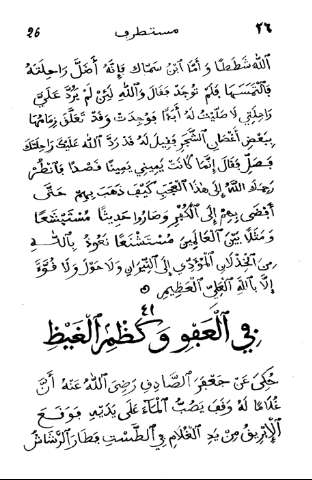 ٢٦ مستطرف 26
الله شططا وأما ابن سماك فإنه أضل راحلته
فالتمسها فلم توجد فقال والله لين لم يرد علي
راحلتي لا صليت له أبدا فوجدت وقد تعلق زمامها
ببعض أغصان الشجر فقيل له قد رد الله عليك راحلتك
فصل فقال إنما كانت يميني يمينا قصدا فانظر
رحمك الله إلى هذا العجب كيف ذهب بهم حتى
أفضى بهم إلى الكفر وصاروا حديثا مستبشعا
ومثلا بين العالمين مستشنعا نعوذ بالله
من الخذلان المؤدي إلى النيران ولا حول ولا قوة
إلا بالله العلي العظيم
٤١
في العفو وكظم الغيظ
حكي عن جعفر الصادق رضي الله عنه أن
غلاما له وقف يصب الماء على يديه فوقع
الإبريق من يد الغلام في الطست فطار الرشاش